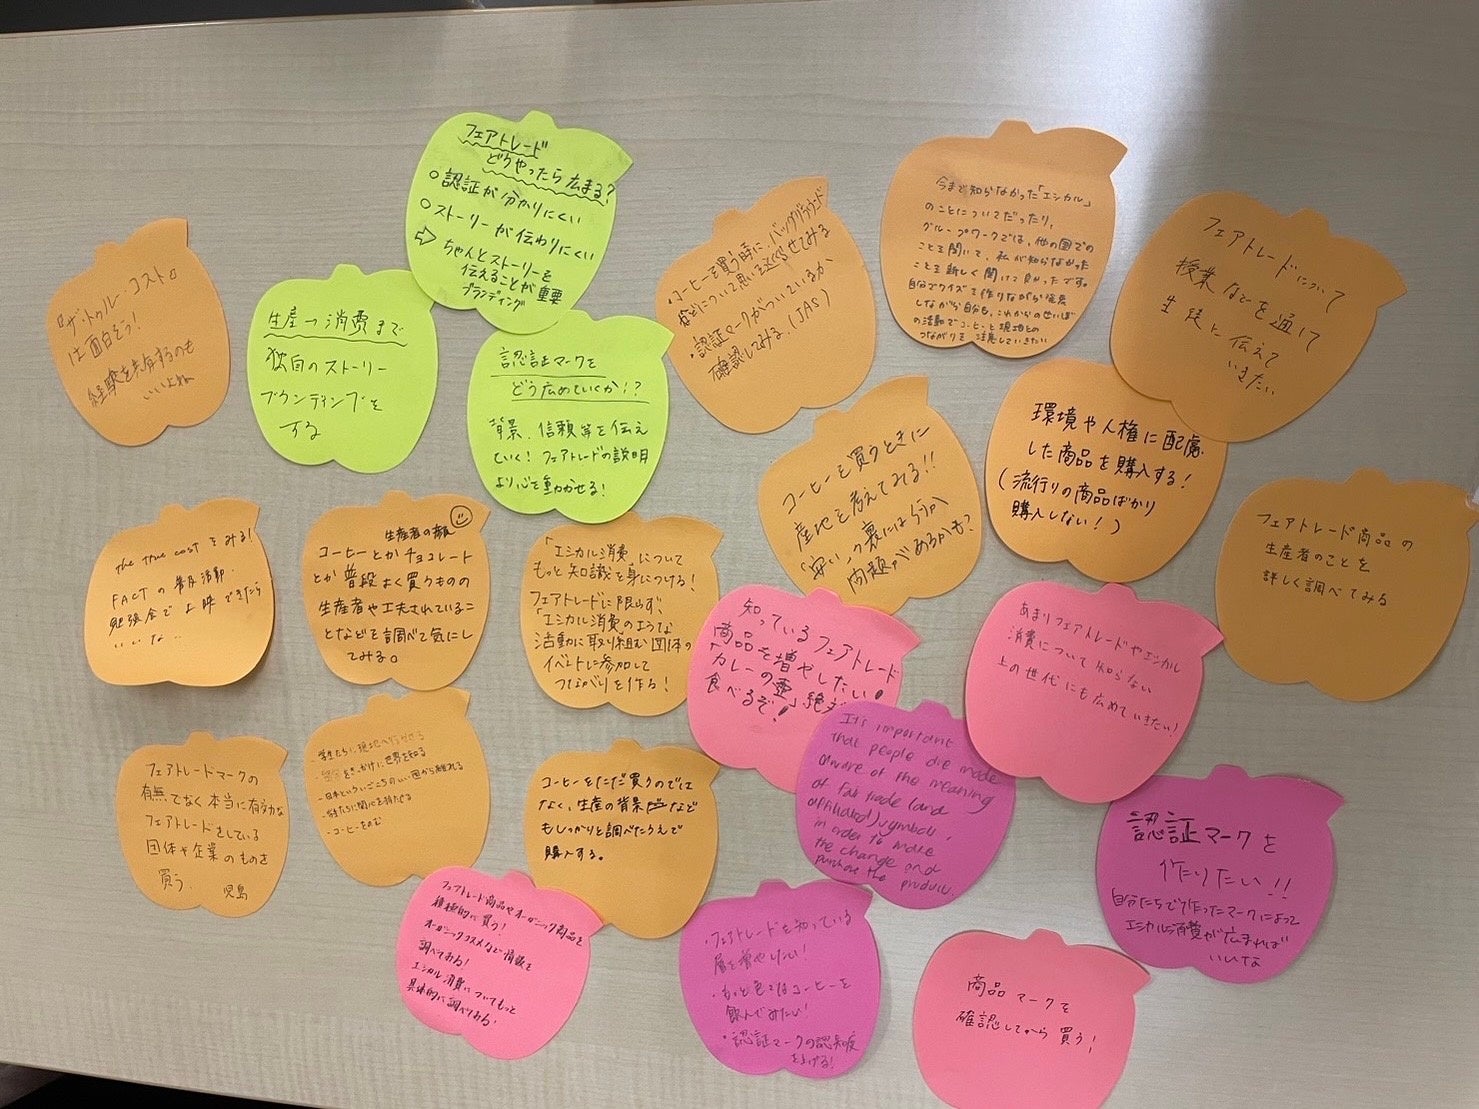 フェアトレード
どうやったら広まる?
○認証が分かりにくい
○ストーリーが伝わりにくい
⇨ちゃんとストーリーを
伝えることが重要
ブランディング
生産→消費まで
独自のストーリー
ブランディングを
する
認証マークを
どう広めていくか!?
背景、信頼等を伝え
ていく!フェアトレードの説明
より心を動かせる!
『ザ・トゥルー・コスト』
は面白そう!
経験を共有するのも
いいよね
・コーヒーを買う時に、バックグラウンド
などについて思いを馳せてみる
・認証マークがついているか
確認してみる(JAS)
今まで知らなかった「エシカル」
のことについてだったり、
グループワークでは、他の国での
ことを聞いて、私が知らなかった
ことを新しく聞けて良かったです。
自分でクイズを作りながら
しながら自分も、これからの
の活動でコーヒーと現地との
つながりを 注意していきたい
フェアトレードについて
授業などを通して
生徒に伝えて
いきたい
コーヒーを買うときに
産地を考えてみる!!
「安い」の裏には労働
問題があるかも?
環境や人権に配慮
した商品を購入する!
(流行りの商品ばかり
購入しない!)
フェアトレード商品の
生産者のことを
詳しく調べてみる
the true costをみる!
FACTの普及活動、
勉強会で上映できたら
いいな..
生産者の顔
コーヒーとかチョコレート
とか普段よく買うものの
生産者や工夫されているこ
となどを調べて気にし
てみる。
「エシカル消費」について
もっと知識を身につける!
フェアトレードに限らず、
「エシカル消費のような
活動に取り組む団体の
イベントに参加して
つながりを作る!
知っているフェアトレード
商品を増やしたい!
「カレーの壺」絶対
食べるぞ!
あまりフェアトレードやエシカル
消費について知らない
上の世代にも広めていきたい!
フェアトレードマークの
有無でなく本当に有効な
フェアトレードをしている
団体や企業のものを
買う. 児島
・学生たちに現地へ行かせる
をきっかけに世界を知る
・日本といういごこちのいい国から離れる
に関心を持たせる
・コーヒーをのむ
コーヒーをただ買うのでは
なく、生産の背景などなど
もしっかりと調べたうえで
購入する。
It's important
that people are made
aware of the meaning
of fair trade (and
affiliated) symbols,
in order to make
the change and
purchase the products.
認証マークを
作りたい!!
自分たちで作ったマークによって
エシカル消費が広まれば
いいな
フェアトレード商品やオーガニック商品を
積極的に買う!
オーガニックコスメなど情報を
調べてみる!
エシカル消費についてもっと
具体的に調べてみる.
・フェアトレードを知っている
層を増やしたい!
・もっと色々なコーヒーを
飲んでみたい!
・認証マークの認知度
を上げる!
商品マークを
確認してから買う!